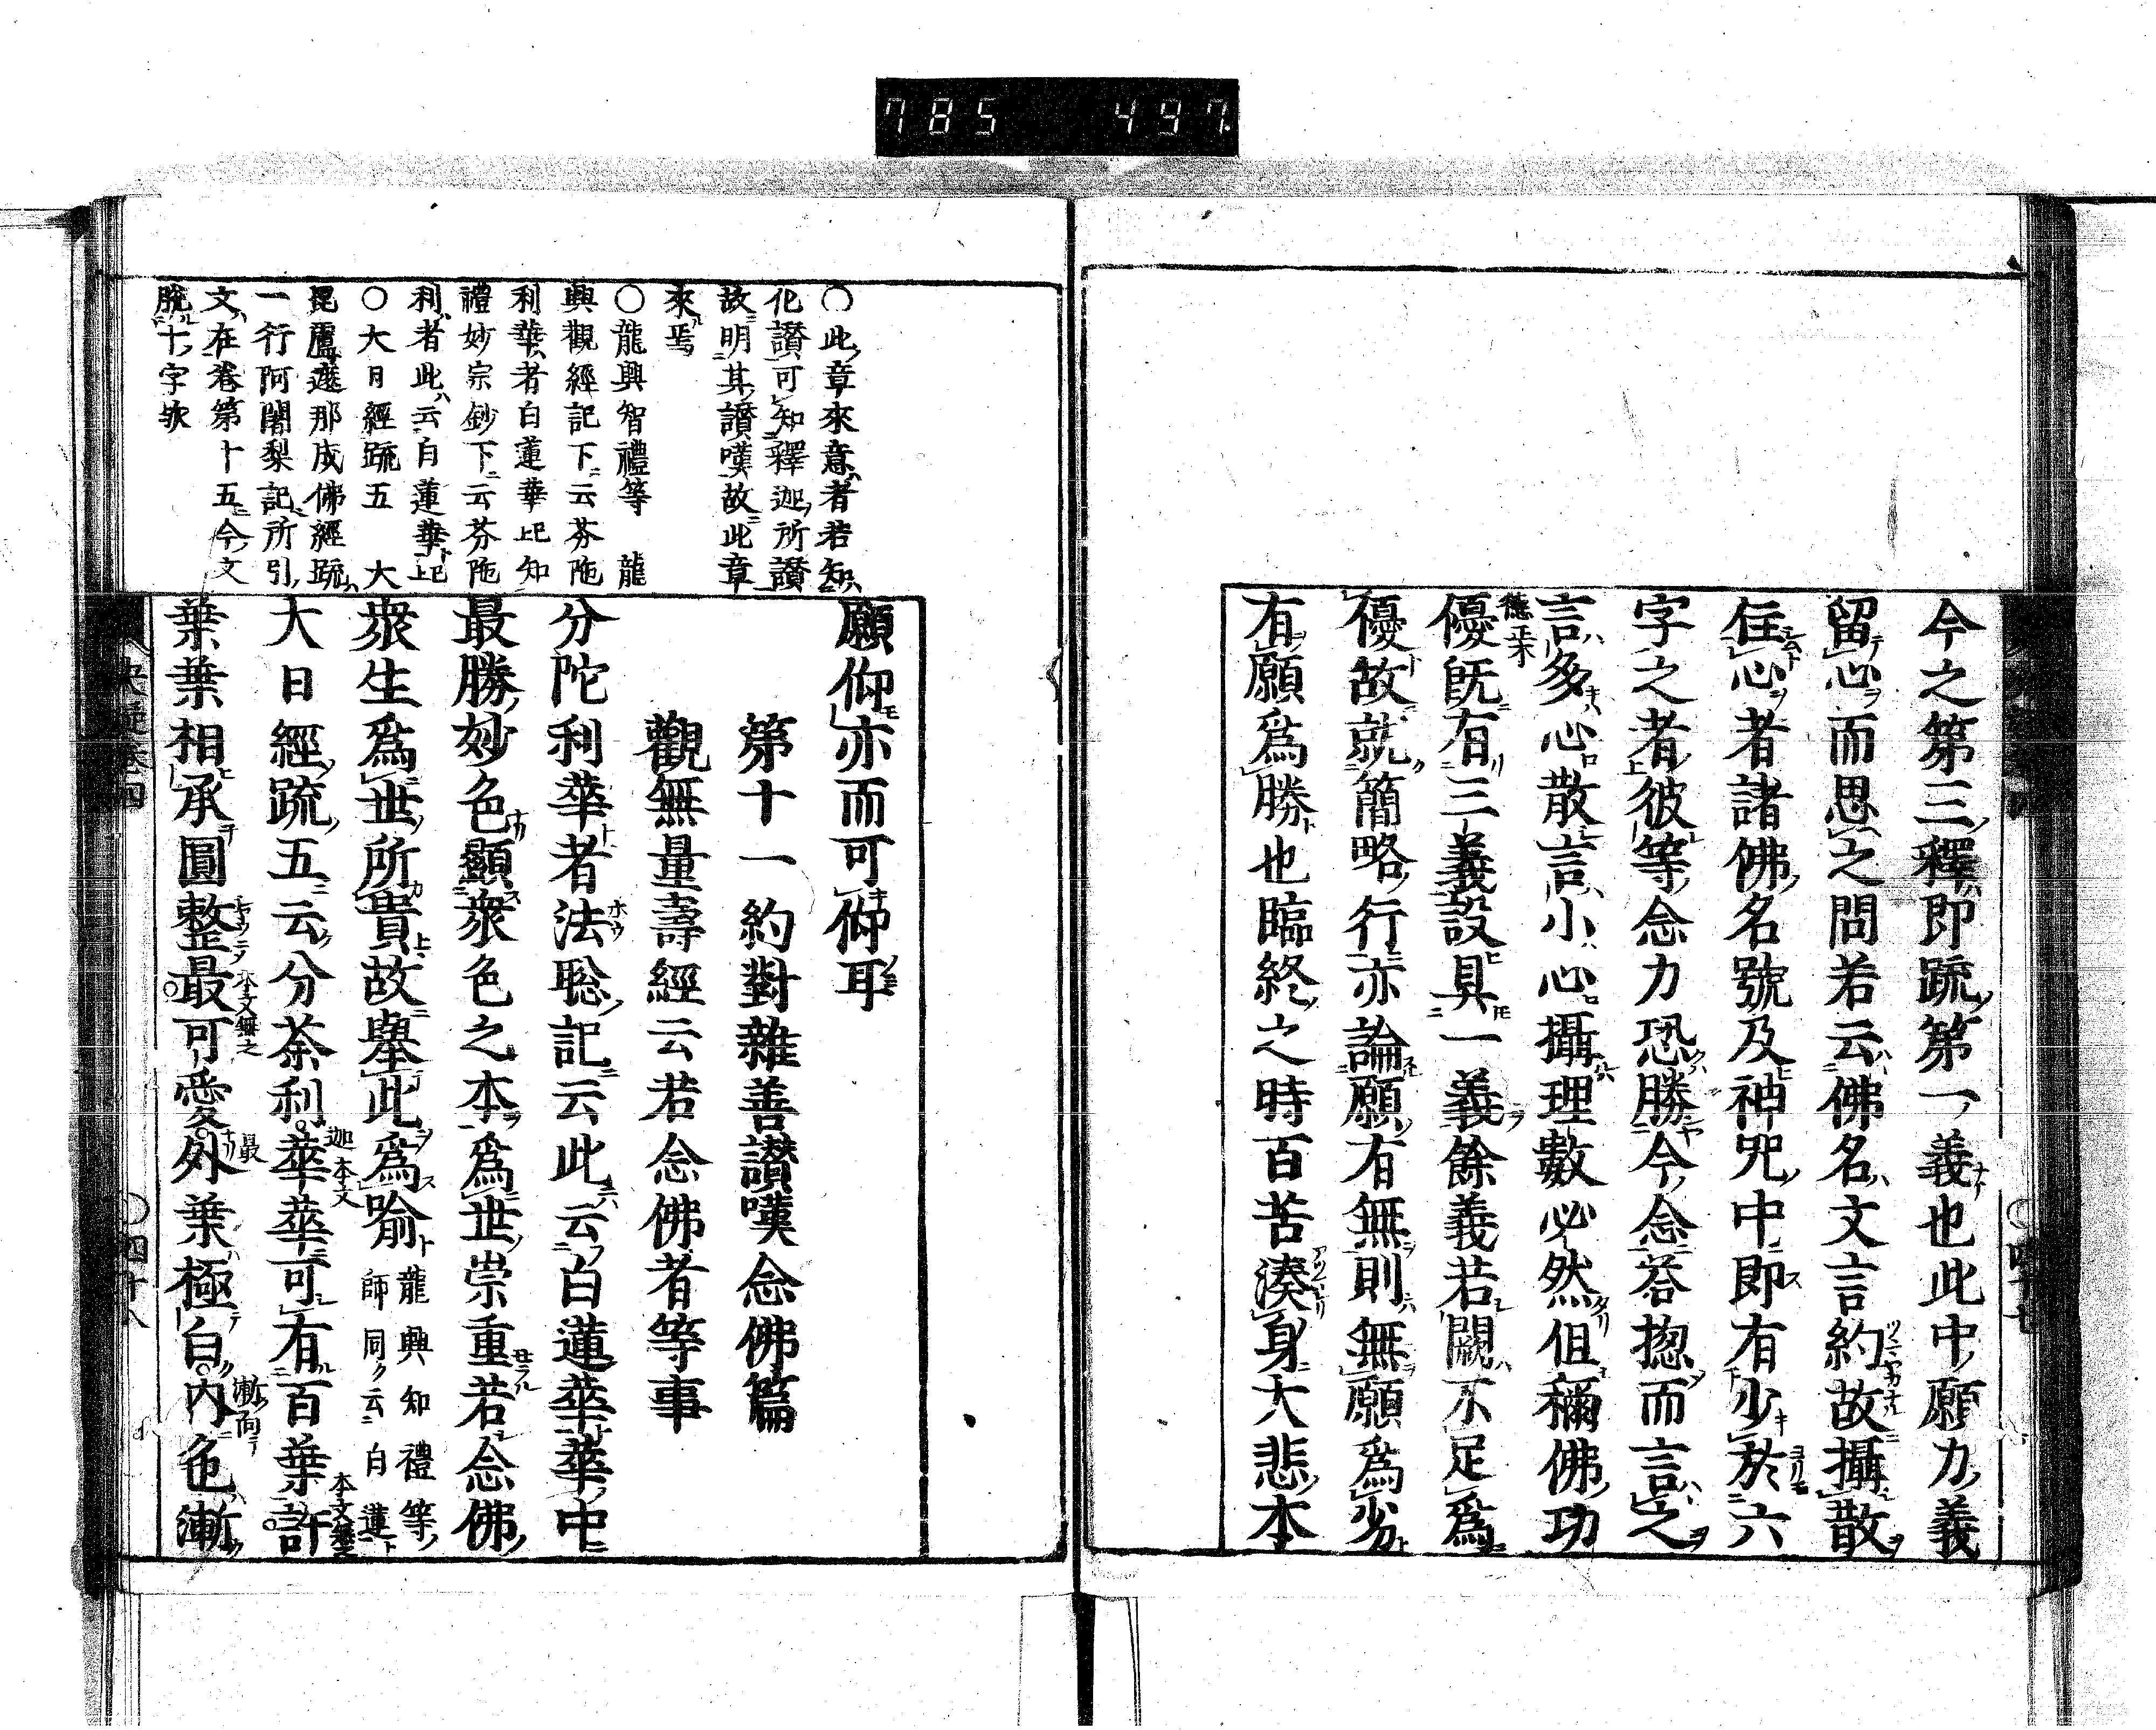 785 497
今之第三釋即疏第一義也此中願力義
留心而思之問若云佛名文言約故攝散
住心者諸佛名號及神咒中即有少於六
字之者彼等念力恐勝今念荅揔而言之
言多心散言小心攝理數必然但稱佛功
優既有三義設具一義餘義若闕不足爲
優故就簡略行亦論願有無則無願爲劣
有願爲勝也臨終之時百苦湊身大悲本
○此章來意者若知
化讃可知釋迦所讃
故明其讃嘆故此章
來焉
○龍興智禮等 龍
興觀經記下云芬陁
利華者白蓮華已知
禮妙宗鈔下云芬陁
利者此云白蓮華已
○大日經疏五 大
毘盧遮那成佛經疏
一行阿闍梨記所引
文在卷第十五今文
脫十字欤
願仰亦而可仰耳
第十一約對雜善讃嘆念佛篇
觀無量壽經云若念佛者等事
分陀利華者法聡記云此云白蓮華華中
最勝妙色顯衆色之本爲世崇重若念佛
衆生爲世所貴故擧此爲喻龍興知禮等
師同ク云白蓮
大日經疏五云分荼利華華可有百葉許
葉葉相承圓整最可愛外葉極白内色漸